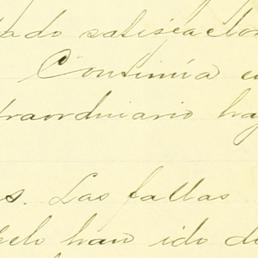 ado satisfaction
Continúa e
traordinario ha
s. Las fallas
elo han ido d